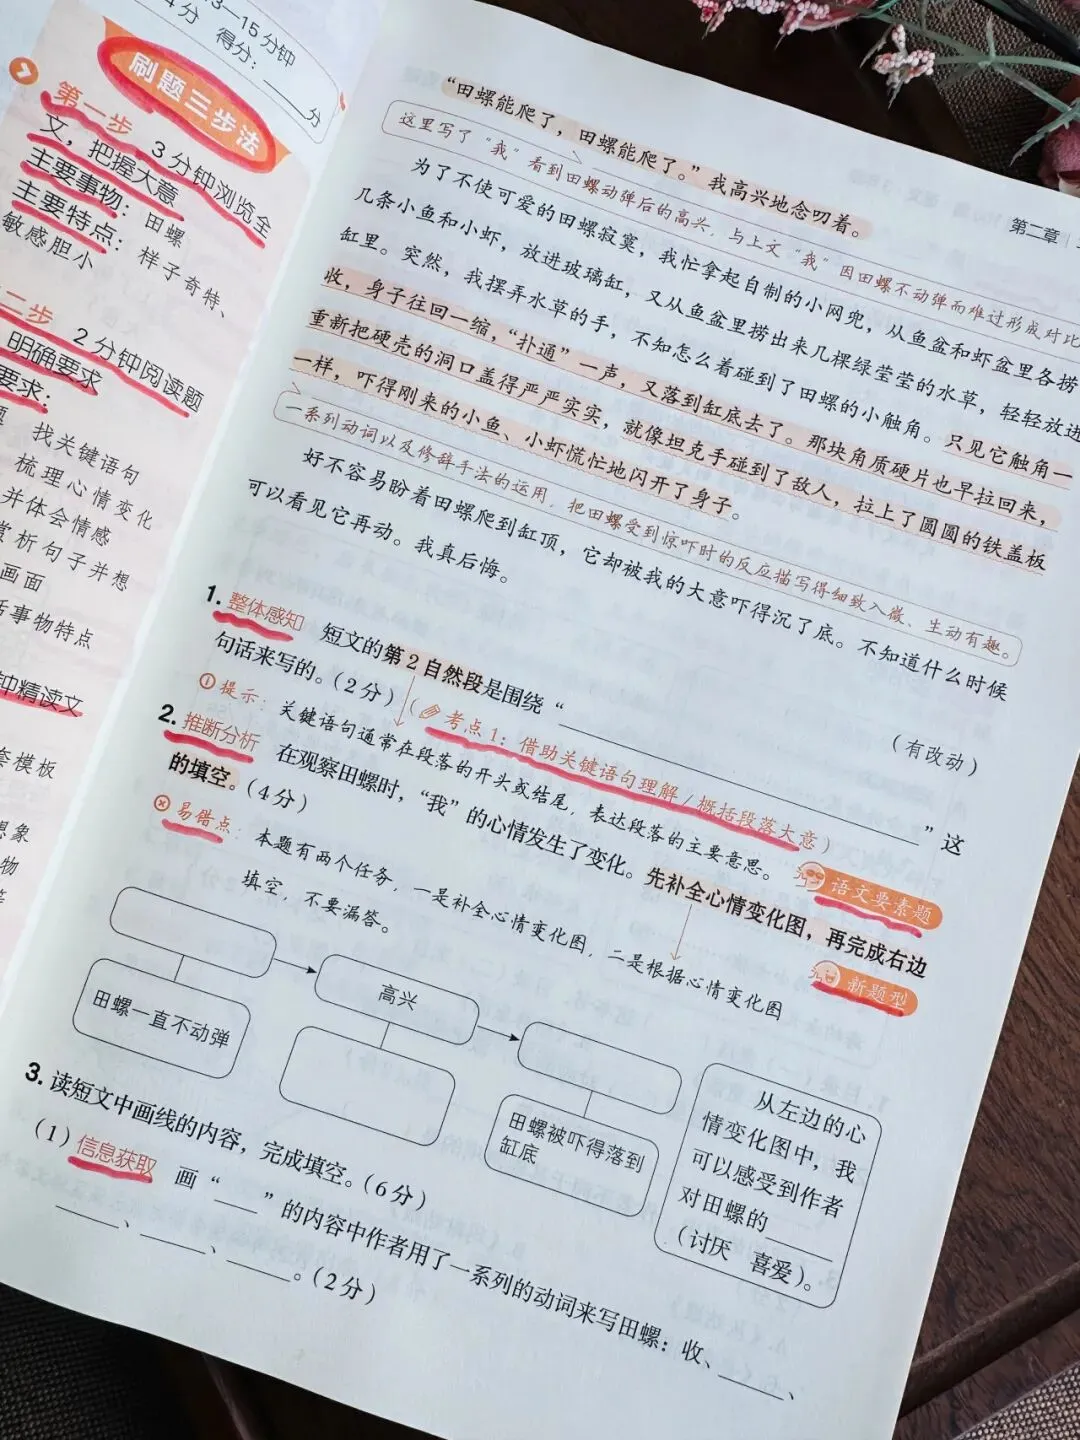 3—15分钟
4分 得分：____分
刷题三步法
第一步 3分钟浏览全
文，把握大意
主要事物：田螺
主要特点：样子奇特、
敏感胆小
二步 2分钟阅读题
明确要求
要求：
题 找关键语句
梳理心情变化
并体会情感
赏析句子并想
画面
活事物特点
钟精读文
套模板
想象
物
第二章
“田螺能爬了，田螺能爬了。”我高兴地念叨着。
这里写了“我”看到田螺动弹后的高兴，与上文“我”因田螺不动弹而难过形成对比
为了不使可爱的田螺寂寞，我忙拿起自制的小网兜，从鱼盆和虾盆里各捞
几条小鱼和小虾，放进玻璃缸，又从鱼盆里捞出来几棵绿莹莹的水草，轻轻放进
缸里。突然，我摆弄水草的手，不知怎么着碰到了田螺的小触角。只见它触角一
收，身子往回一缩，“扑通”一声，又落到缸底去了。那块角质硬片也早拉回来，
重新把硬壳的洞口盖得严严实实，就像坦克手碰到了敌人，拉上了圆圆的铁盖板
一样，吓得刚来的小鱼、小虾慌忙地闪开了身子。
一系列动词以及修辞手法的运用，把田螺受到惊吓时的反应描写得细致入微、生动有趣。
好不容易盼着田螺爬到缸顶，它却被我的大意吓得沉了底。不知道什么时候
可以看见它再动。我真后悔。
（有改动）
1. 整体感知 短文的第2自然段是围绕“____”这
句话来写的。（2分）（考点1：借助关键语句理解/概括段落大意）
提示：关键语句通常在段落的开头或结尾，表达段落的主要意思。
语文要素题
2. 推断分析 在观察田螺时，“我”的心情发生了变化。先补全心情变化图，再完成右边
的填空。（4分）
新题型
易错点：本题有两个任务，一是补全心情变化图，二是根据心情变化图
填空，不要漏答。
高兴
田螺一直不动弹
田螺被吓得落到
缸底
从左边的心
情变化图中，我
可以感受到作者
对田螺的____
（讨厌 喜爱）。
3. 读短文中画线的内容，完成填空。（6分）
（1）信息获取 画“____”的内容中作者用了一系列的动词来写田螺：收、____、
____、____、____。（2分）